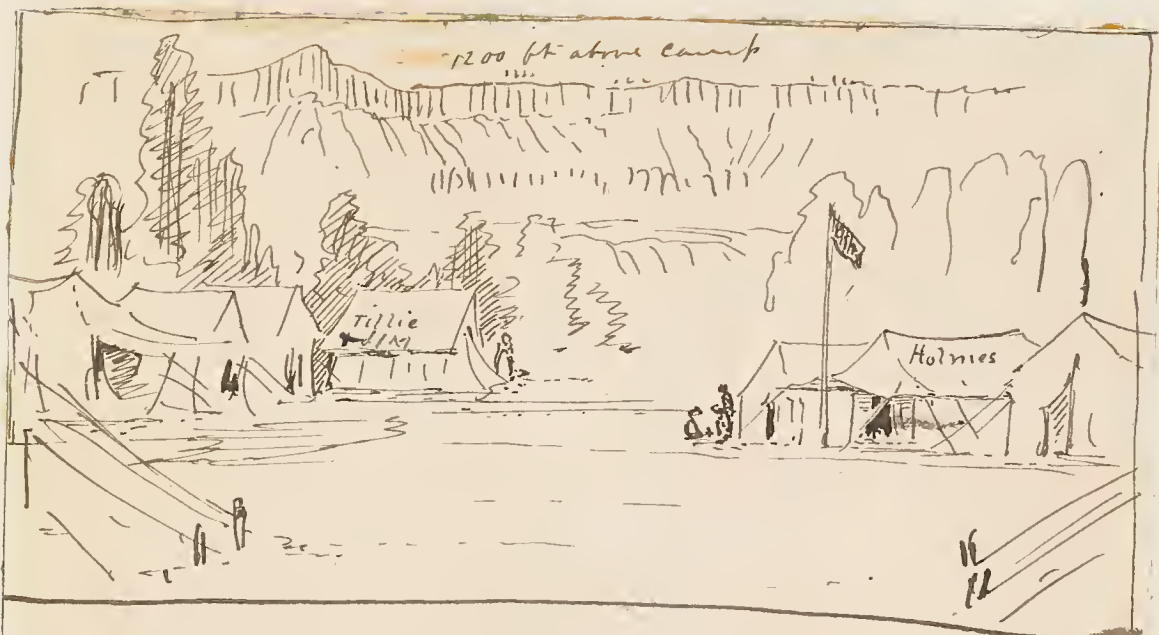 1200 ft above camp
Tillie
Holmes